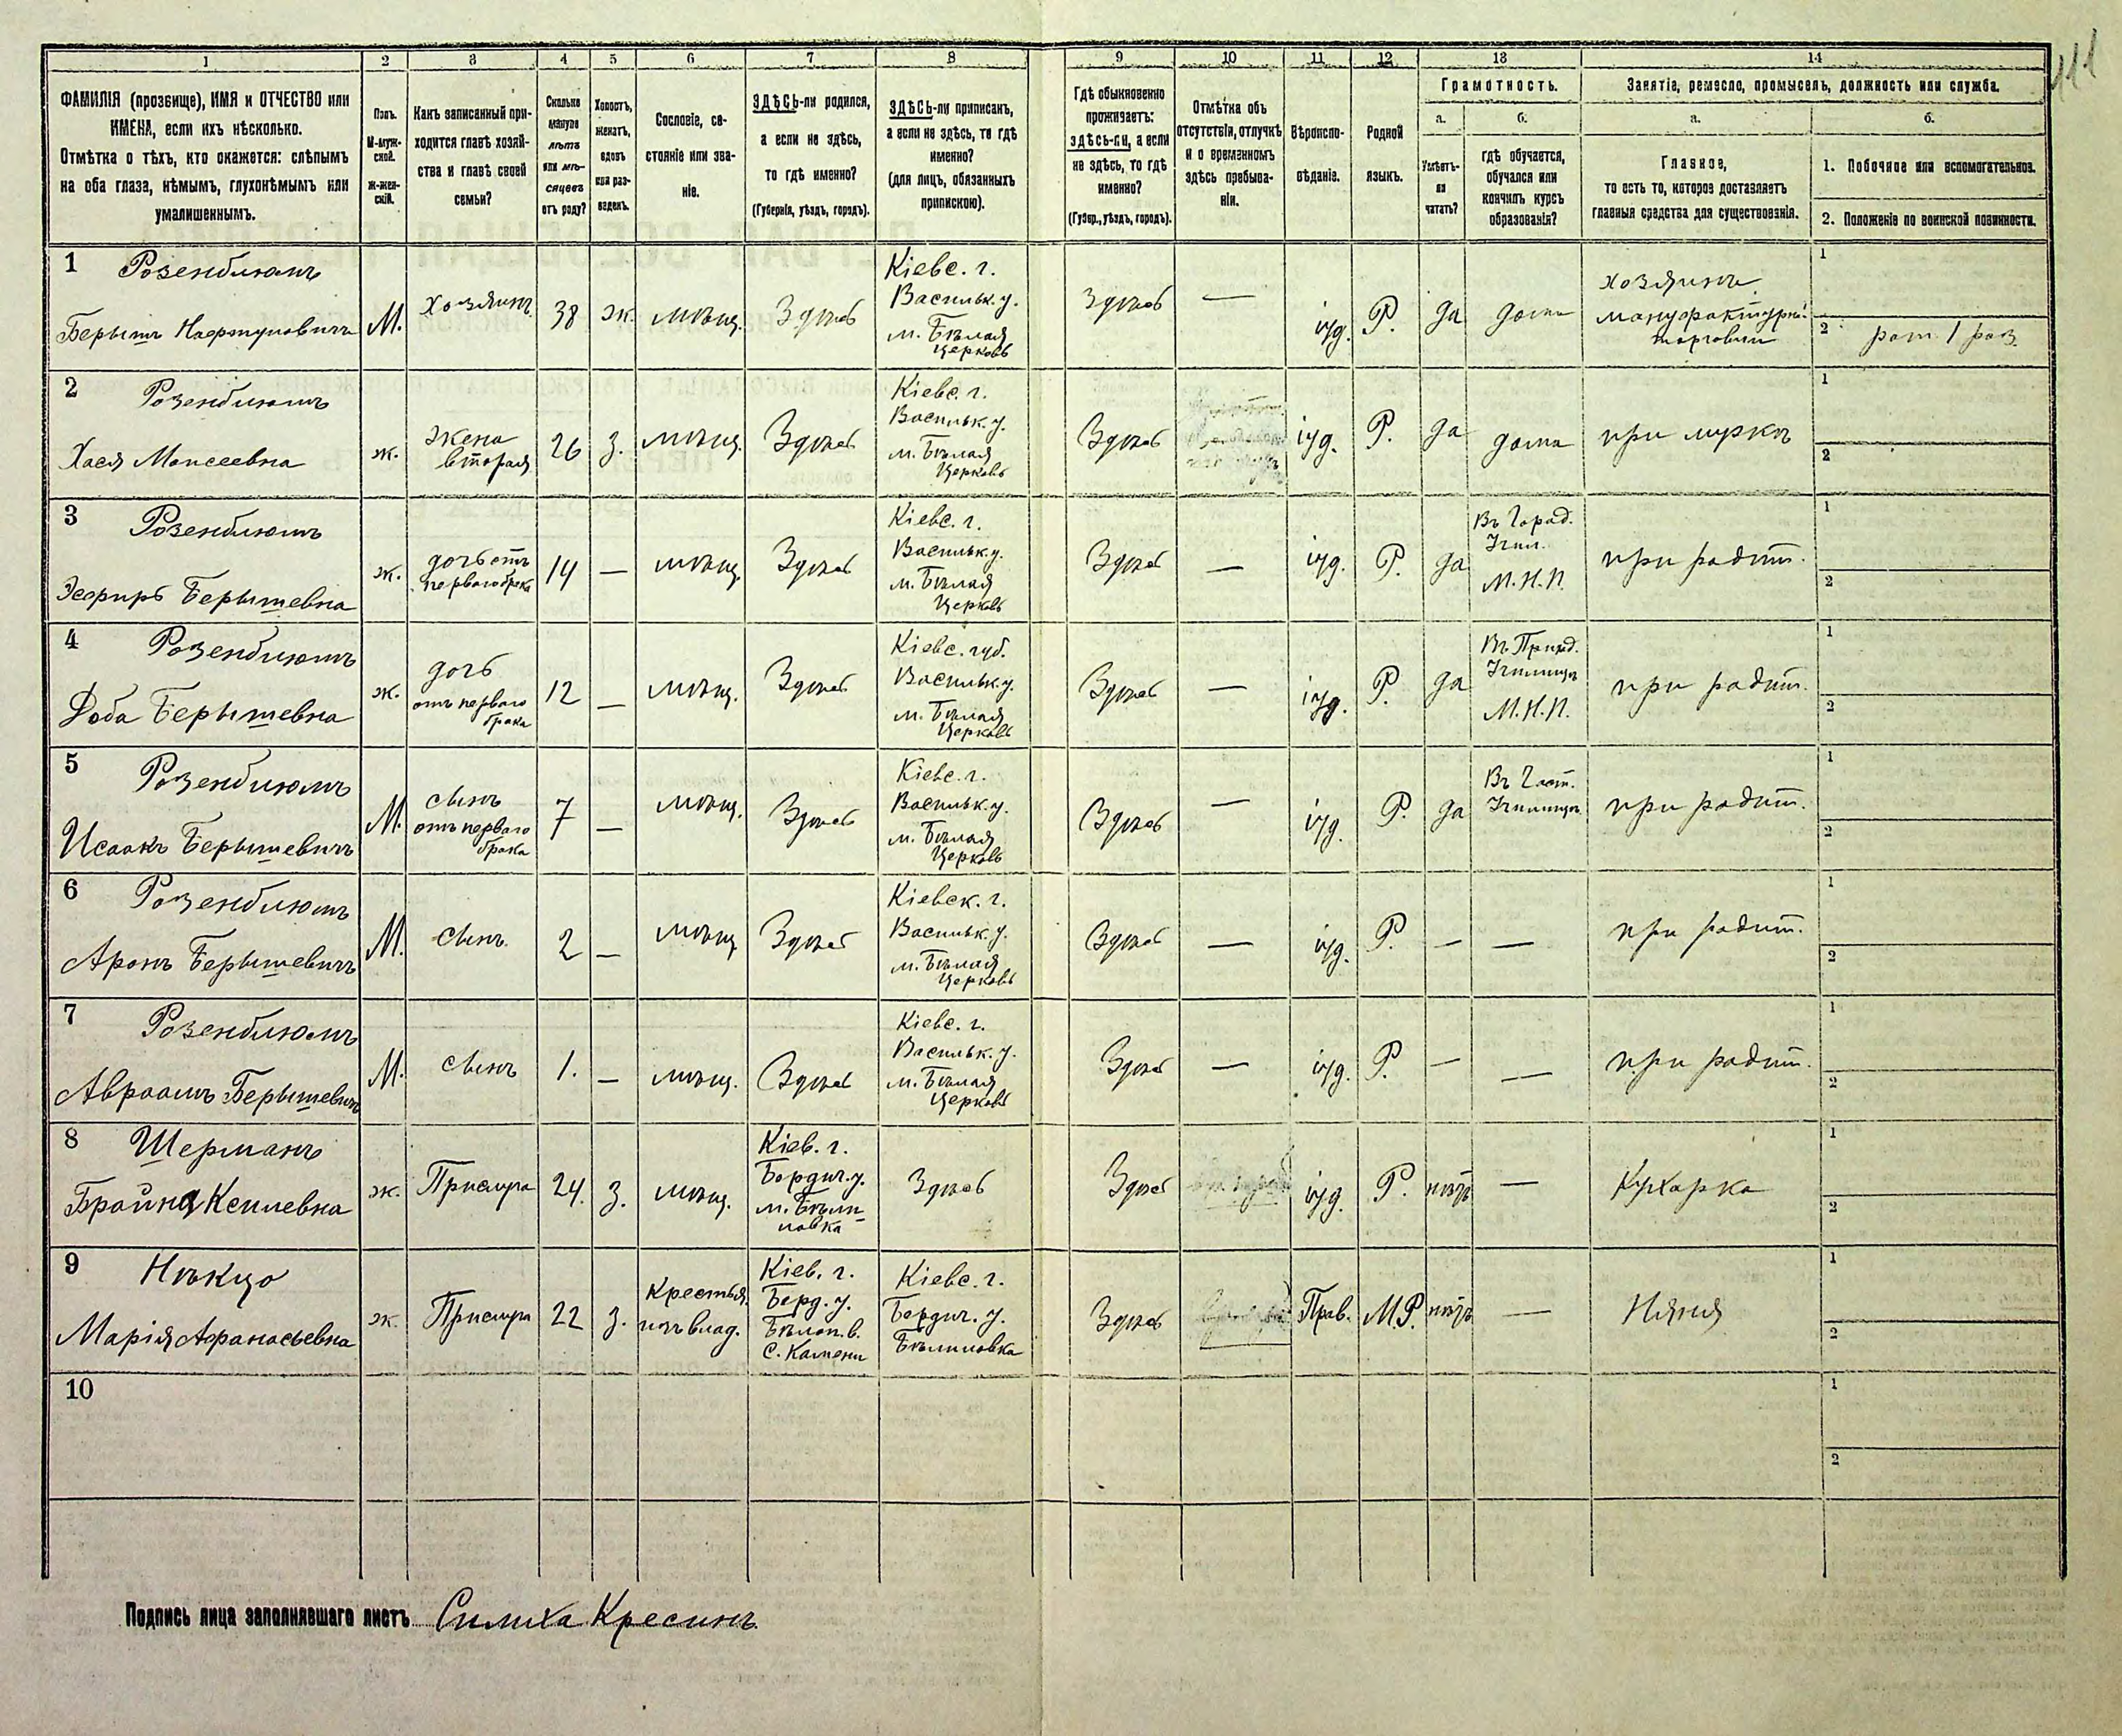 111
1 2 3 4 5 6 7 8 9 10 11 12 13 14
ФАМИЛІЯ (прозвище), ИМЯ и ОТЧЕСТВО или
ИМЕНА, если ихъ нѣсколько.
Отмѣтка о тѣхъ, кто окажется: слѣпымъ
на оба глаза, нѣмымъ, глухонѣмымъ или
умалишеннымъ.
Полъ.
М-муж-
ской.
Ж-жен-
скій.
Какъ записанный при-
ходится главѣ хозяй-
ства и главѣ своей
семьи?
Сколько
минуло
лѣтъ
или мѣ-
сяцевъ
отъ роду?
Холостъ,
женатъ,
вдовъ
или раз-
веденъ.
Сословіе, со-
стояніе или зва-
ніе.
ЗДѢСЬ-ли родился,
а если не здѣсь,
то гдѣ именно?
(Губернія, уѣздъ, городъ).
ЗДѢСЬ-ли приписанъ,
а если не здѣсь, то гдѣ
именно?
(для лицъ, обязанныхъ
припискою).
Гдѣ обыкновенно
проживаетъ:
здѣсь-ли, а если
не здѣсь, то гдѣ
именно?
(Губер., уѣздъ, городъ).
Отмѣтка объ
отсутствіи, отлучкѣ
и о временномъ
здѣсь пребыва-
ніи.
Вѣроиспо-
вѣданіе.
Родной
языкъ.
Грамотность.
а.
Умѣетъ-
ли
читать?
б.
гдѣ обучается,
обучался или
кончилъ курсъ
образованія?
Занятіе, ремесло, промыселъ, должность или служба.
а.
Главное,
то есть то, которое доставляетъ
главныя средства для существованія.
б.
1. Побочное или вспомогательное.
2. Положеніе по воинской повинности.
1 Розенблюмъ
Берышъ
М.
Хозяинъ
38
ж.
мѣщ.
Здѣсь
Кіевс. г.
Васильк. у.
м. Бѣлая
Церковь
Здѣсь
—
іуд.
Р.
да
дома
хозяинъ
мануфактурн.
торговли
1
2 рат. 1 раз.
2 Розенблюмъ
Хася Моисеевна
ж.
жена
вторая
26
з.
мѣщ.
Здѣсь
Кіевс. г.
Васильк. у.
м. Бѣлая
Церковь
Здѣсь
іуд.
Р.
да
дома
при мужѣ
1
2
3 Розенблюмъ
Эсфирь Берышевна
ж.
дочь отъ
перваго брака
14
—
мѣщ.
Здѣсь
Кіевс. г.
Васильк. у.
м. Бѣлая
Церковь
Здѣсь
—
іуд.
Р.
да
Въ Город.
Учил.
М. Н. П.
при родит.
1
2
4 Розенблюмъ
Доба Берышевна
ж.
дочь
отъ перваго
брака
12
—
мѣщ.
Здѣсь
Кіевс. губ.
Васильк. у.
м. Бѣлая
Церковь
Здѣсь
—
іуд.
Р.
да
Въ Приход.
Училищѣ
М. Н. П.
при родит.
1
2
5 Розенблюмъ
Исаакъ Берышевичъ
М.
сынъ
отъ перваго
брака
7
—
мѣщ.
Здѣсь
Кіевс. г.
Васильк. у.
м. Бѣлая
Церковь
Здѣсь
—
іуд.
Р.
да
Въ Част.
Училищѣ
при родит.
1
2
6 Розенблюмъ
Аронъ Берышевичъ
М.
сынъ.
2
—
мѣщ
Здѣсь
Кіевск. г.
Васильк. у.
м. Бѣлая
Церковь
Здѣсь
—
іуд.
Р.
—
—
при родит.
1
2
7 Розенблюмъ
Авраамъ Берышевичъ
М.
сынъ
1.
—
мѣщ.
Здѣсь
Кіевс. г.
Васильк. у.
м. Бѣлая
Церковь
Здѣсь
—
іуд.
Р.
—
—
при родит.
1
2
8 Шерманъ
Брайна
ж.
Прислуга
24.
з.
мѣщ.
Кіев. г.
Бердич. у.
м. Бѣли
ловка
Здѣсь
Здѣсь
іуд.
Р.
нѣтъ
—
Кухарка
1
2
9
Марія Афанасьевна
ж.
Прислуга
22
з.
Крестья.
изъ влад.
Кіев. г.
Берд. у.
Бѣлол. в.
С. Камени
Кіевс. г.
Бердич. у.
Бѣлиловка
Здѣсь
Прав.
М.Р.
нѣтъ
—
Няня
1
2
10
1
2
Подпись лица заполнявшаго листъ Симха Кресинъ